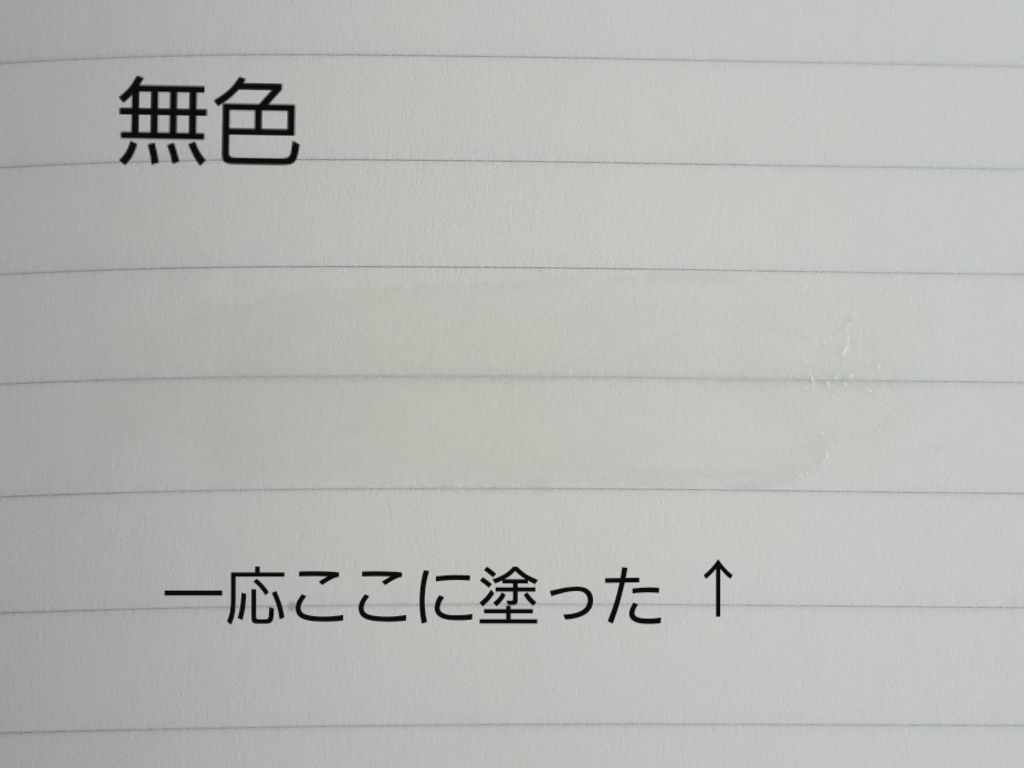 無色
一応ここに塗った ↑